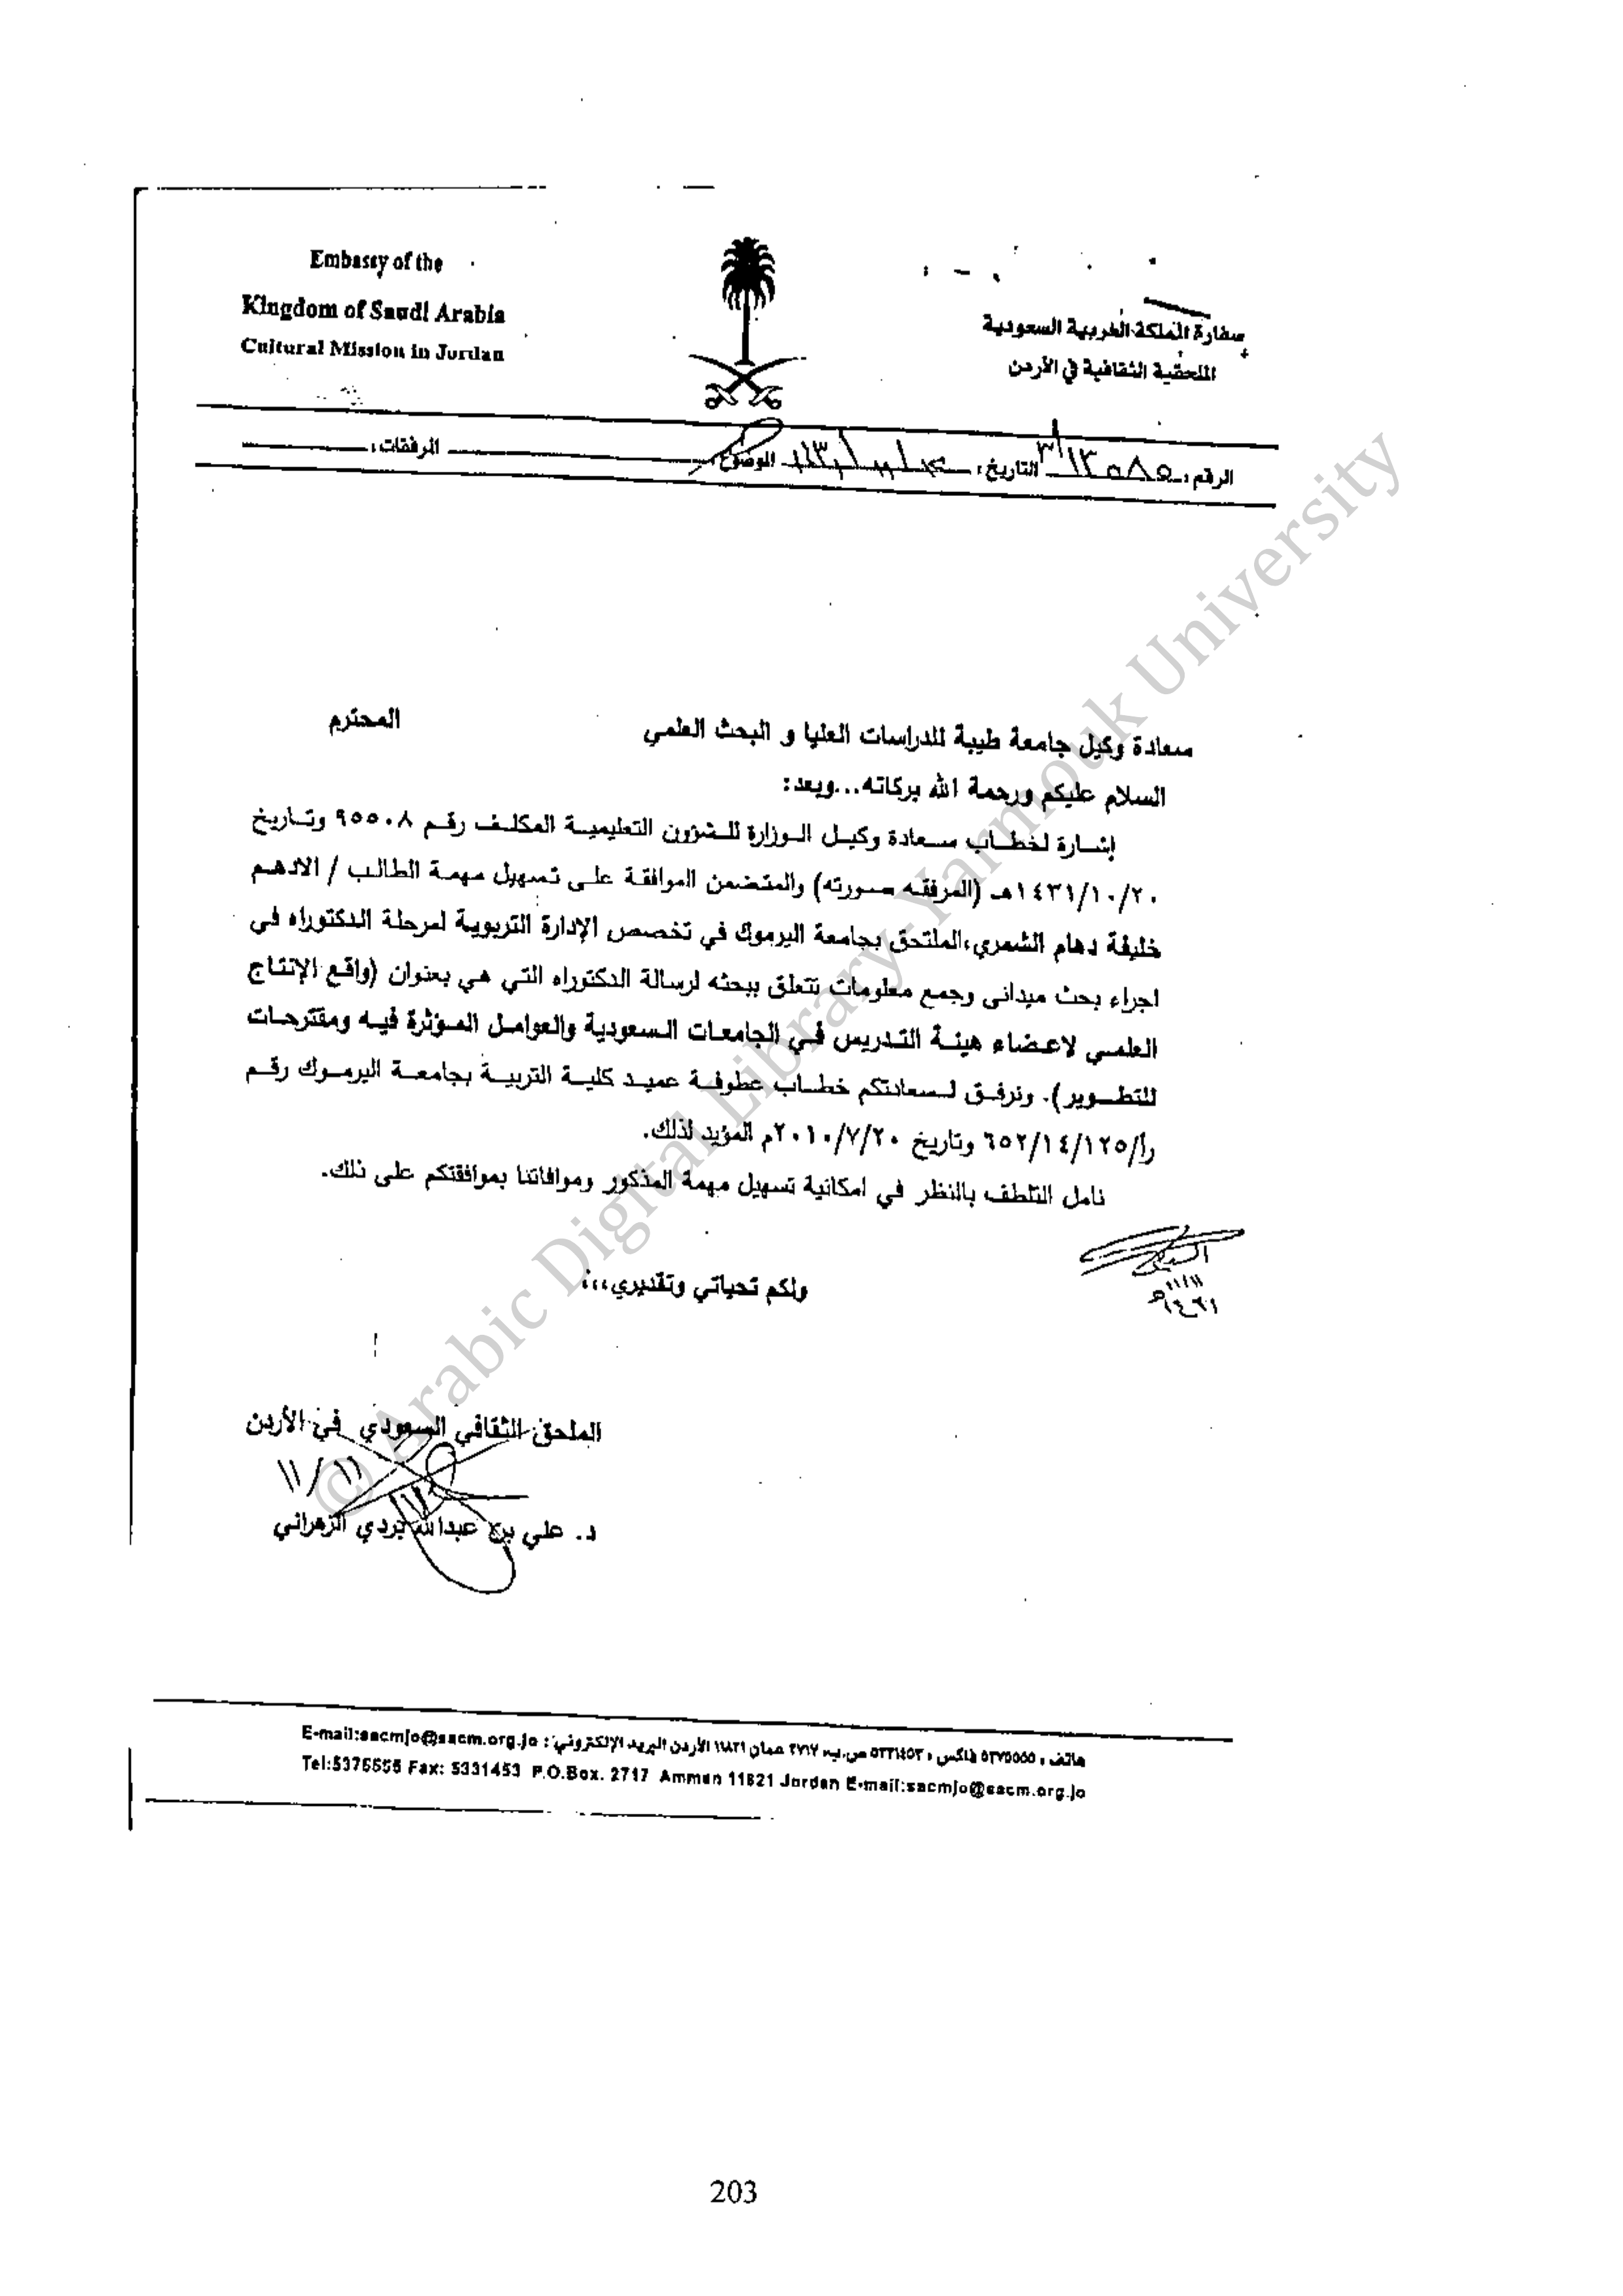 Embassy of the
Kingdom of Saudi Arabia
Cultural Mission in Jordan
سفارة المملكة العربية السعودية
الملحقية الثقافية في الأردن
الرقم: التاريخ: الموضوع: المرفقات:
سعادة وكيل جامعة طيبة للدراسات العليا و البحث العلمي المحترم
السلام عليكم ورحمة الله بركاته...وبعد:
إشارة لخطاب سعادة وكيل الوزارة للشؤون التعليمية المكلف رقم ٩٥٥٠٨ وتاريخ
١٤٣١/١٠/٢٠هـ (المرفقه صورته) والمتضمن الموافقة على تسهيل مهمة الطالب / الادهم
خليفة دهام الشمري،الملتحق بجامعة اليرموك في تخصص الإدارة التربوية لمرحلة الدكتوراه في
اجراء بحث ميدانى وجمع معلومات تتعلق ببحثه لرسالة الدكتوراه التي هي بعنوان (واقع الإنتاج
العلمي لاعضاء هيئة التدريس في الجامعات السعودية والعوامل المؤثرة فيه ومقترحات
للتطوير). ونرفق لسعادتكم خطاب عطوفة عميد كلية التربية بجامعة اليرموك رقم
رأ/٦٥٢/١٤/١٢٥ وتاريخ ٢٠١٠/٧/٢٠م المؤيد لذلك.
نامل التلطف بالنظر في امكانية تسهيل مهمة المذكور وموافاتنا بموافقتكم على ذلك.
ولكم تحياتي وتقديري،،،
١١/١١
الملحق الثقافي السعودي في الأردن
١١/١١
د. علي بن عبدالله بردي الزهراني
هاتف : ٥٣٧٥٥٥٥ فاكس : ٥٣٣١٤٥٣ ص.ب ٢٧١٧ عمان ١١٨٢١ الأردن البريد الإلكتروني : E-mail:sacmjo@sacm.org.jo
Tel:5375555 Fax: 5331453 P.O.Box. 2717 Amman 11821 Jordan E-mail:sacmjo@sacm.org.jo
© Arabic Digital Library-Yarmouk University
203